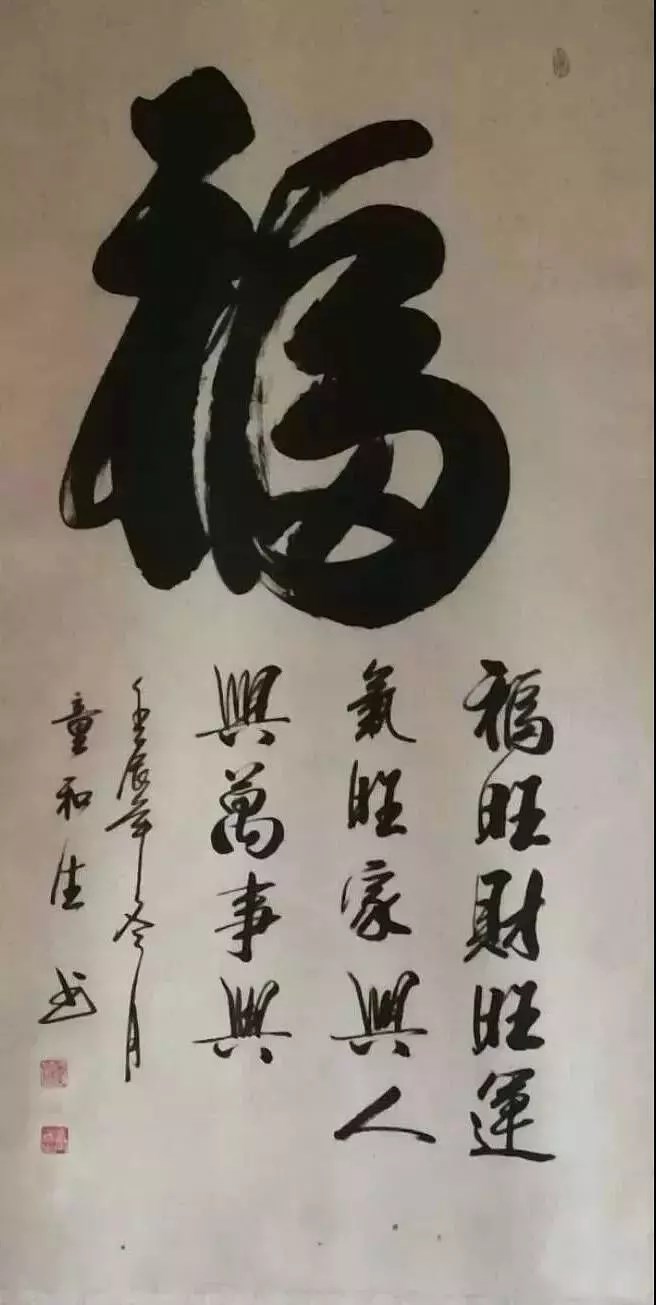 福
福旺財旺運
氣旺家興人
興萬事興
壬辰年冬月
童和生书